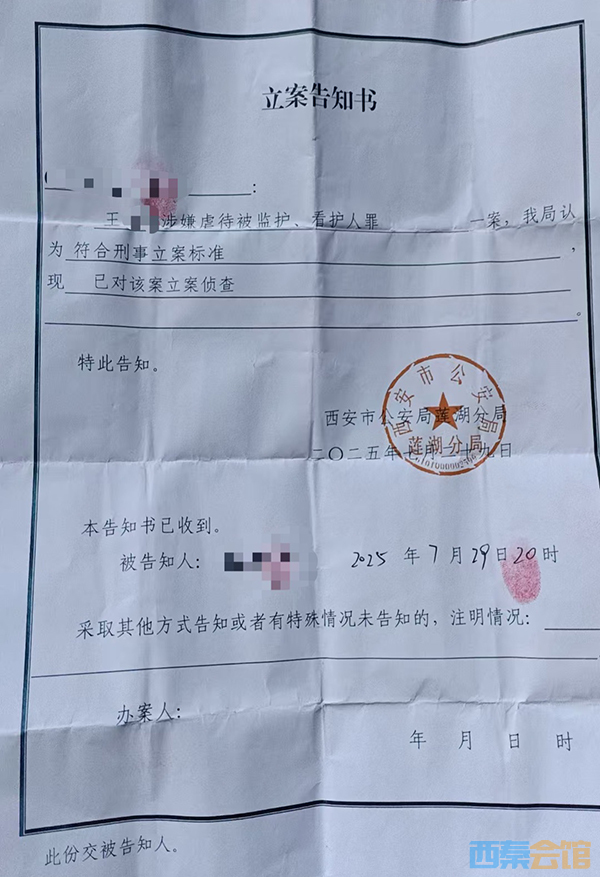 立案告知书
：
王 涉嫌虐待被监护、看护人罪 一案，我局认
为 符合刑事立案标准 ，
现 已对该案立案侦查
。
特此告知。
西安市公安局莲湖分局
西安市公安局
莲湖分局
二〇二五年七月二十九日
本告知书已收到。
被告知人： 2025 年 7 月 29 日 20 时
采取其他方式告知或者有特殊情况未告知的，注明情况：
办案人：
年 月 日 时
此份交被告知人。
西秦会馆